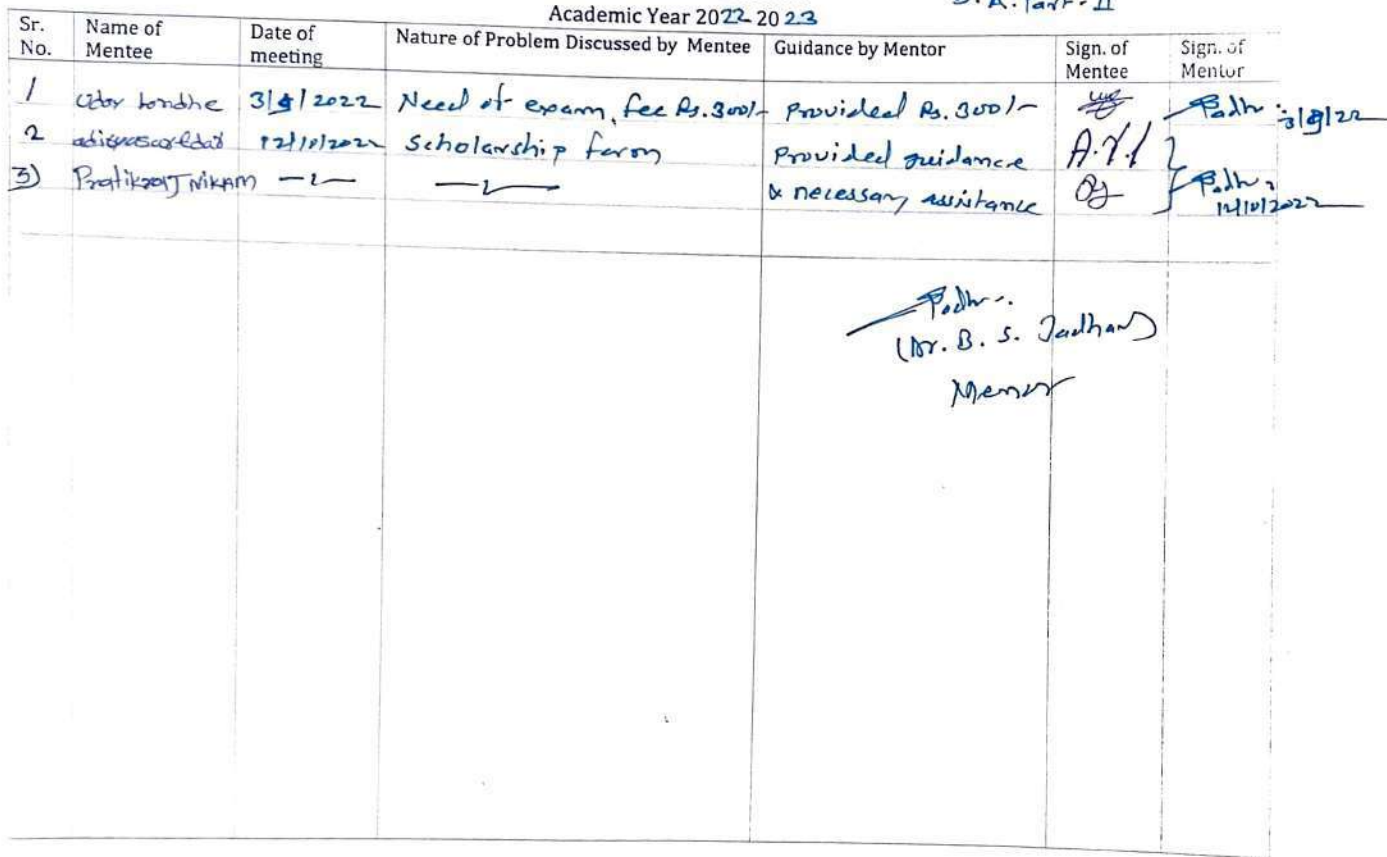 B.A. Part-II
Academic Year 2022 2023
Sr. No. Name of Mentee Date of meeting Nature of Problem Discussed by Mentee Guidance by Mentor Sign. of Mentee Sign. of Mentor
1 londhe 3/9/2022 Need of exam, fee Rs.300/- Provideed Rs. 300/- 3/9/22
2 12/10/2022 Scholarship farom Provided guidance A.Y.
3) Pratikraj NikAm —〃— —〃— & necessary assistance 12/10/2022
(Dr. B. S. Jadhav)
Mentor